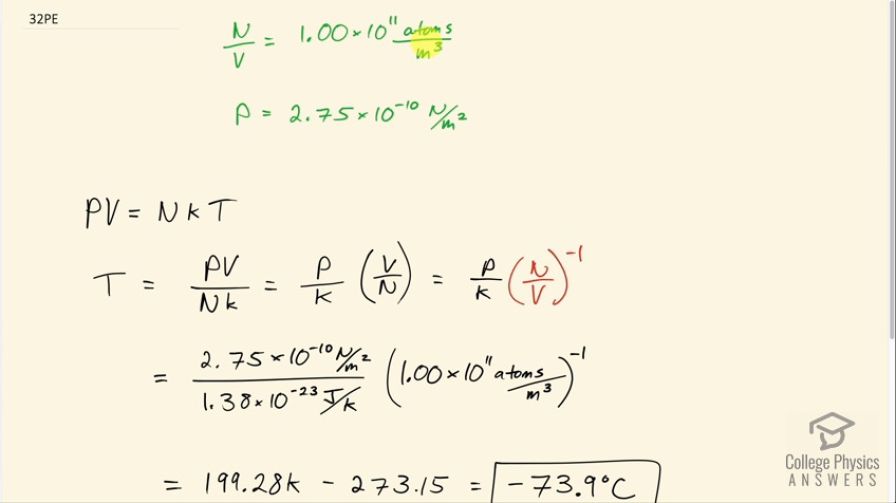 32PE
N/V = 1.00 × 10¹¹ atoms/m³
P = 2.75 × 10⁻¹⁰ N/m²
PV = NkT
T = PV/Nk = P/k (V/N) = P/k (N/V)⁻¹
= 2.75 × 10⁻¹⁰ N/m² / 1.38 × 10⁻²³ J/k (1.00 × 10¹¹ atoms/m³)⁻¹
= 199.28k - 273.15 = -73.9°C
College Physics
ANSWERS